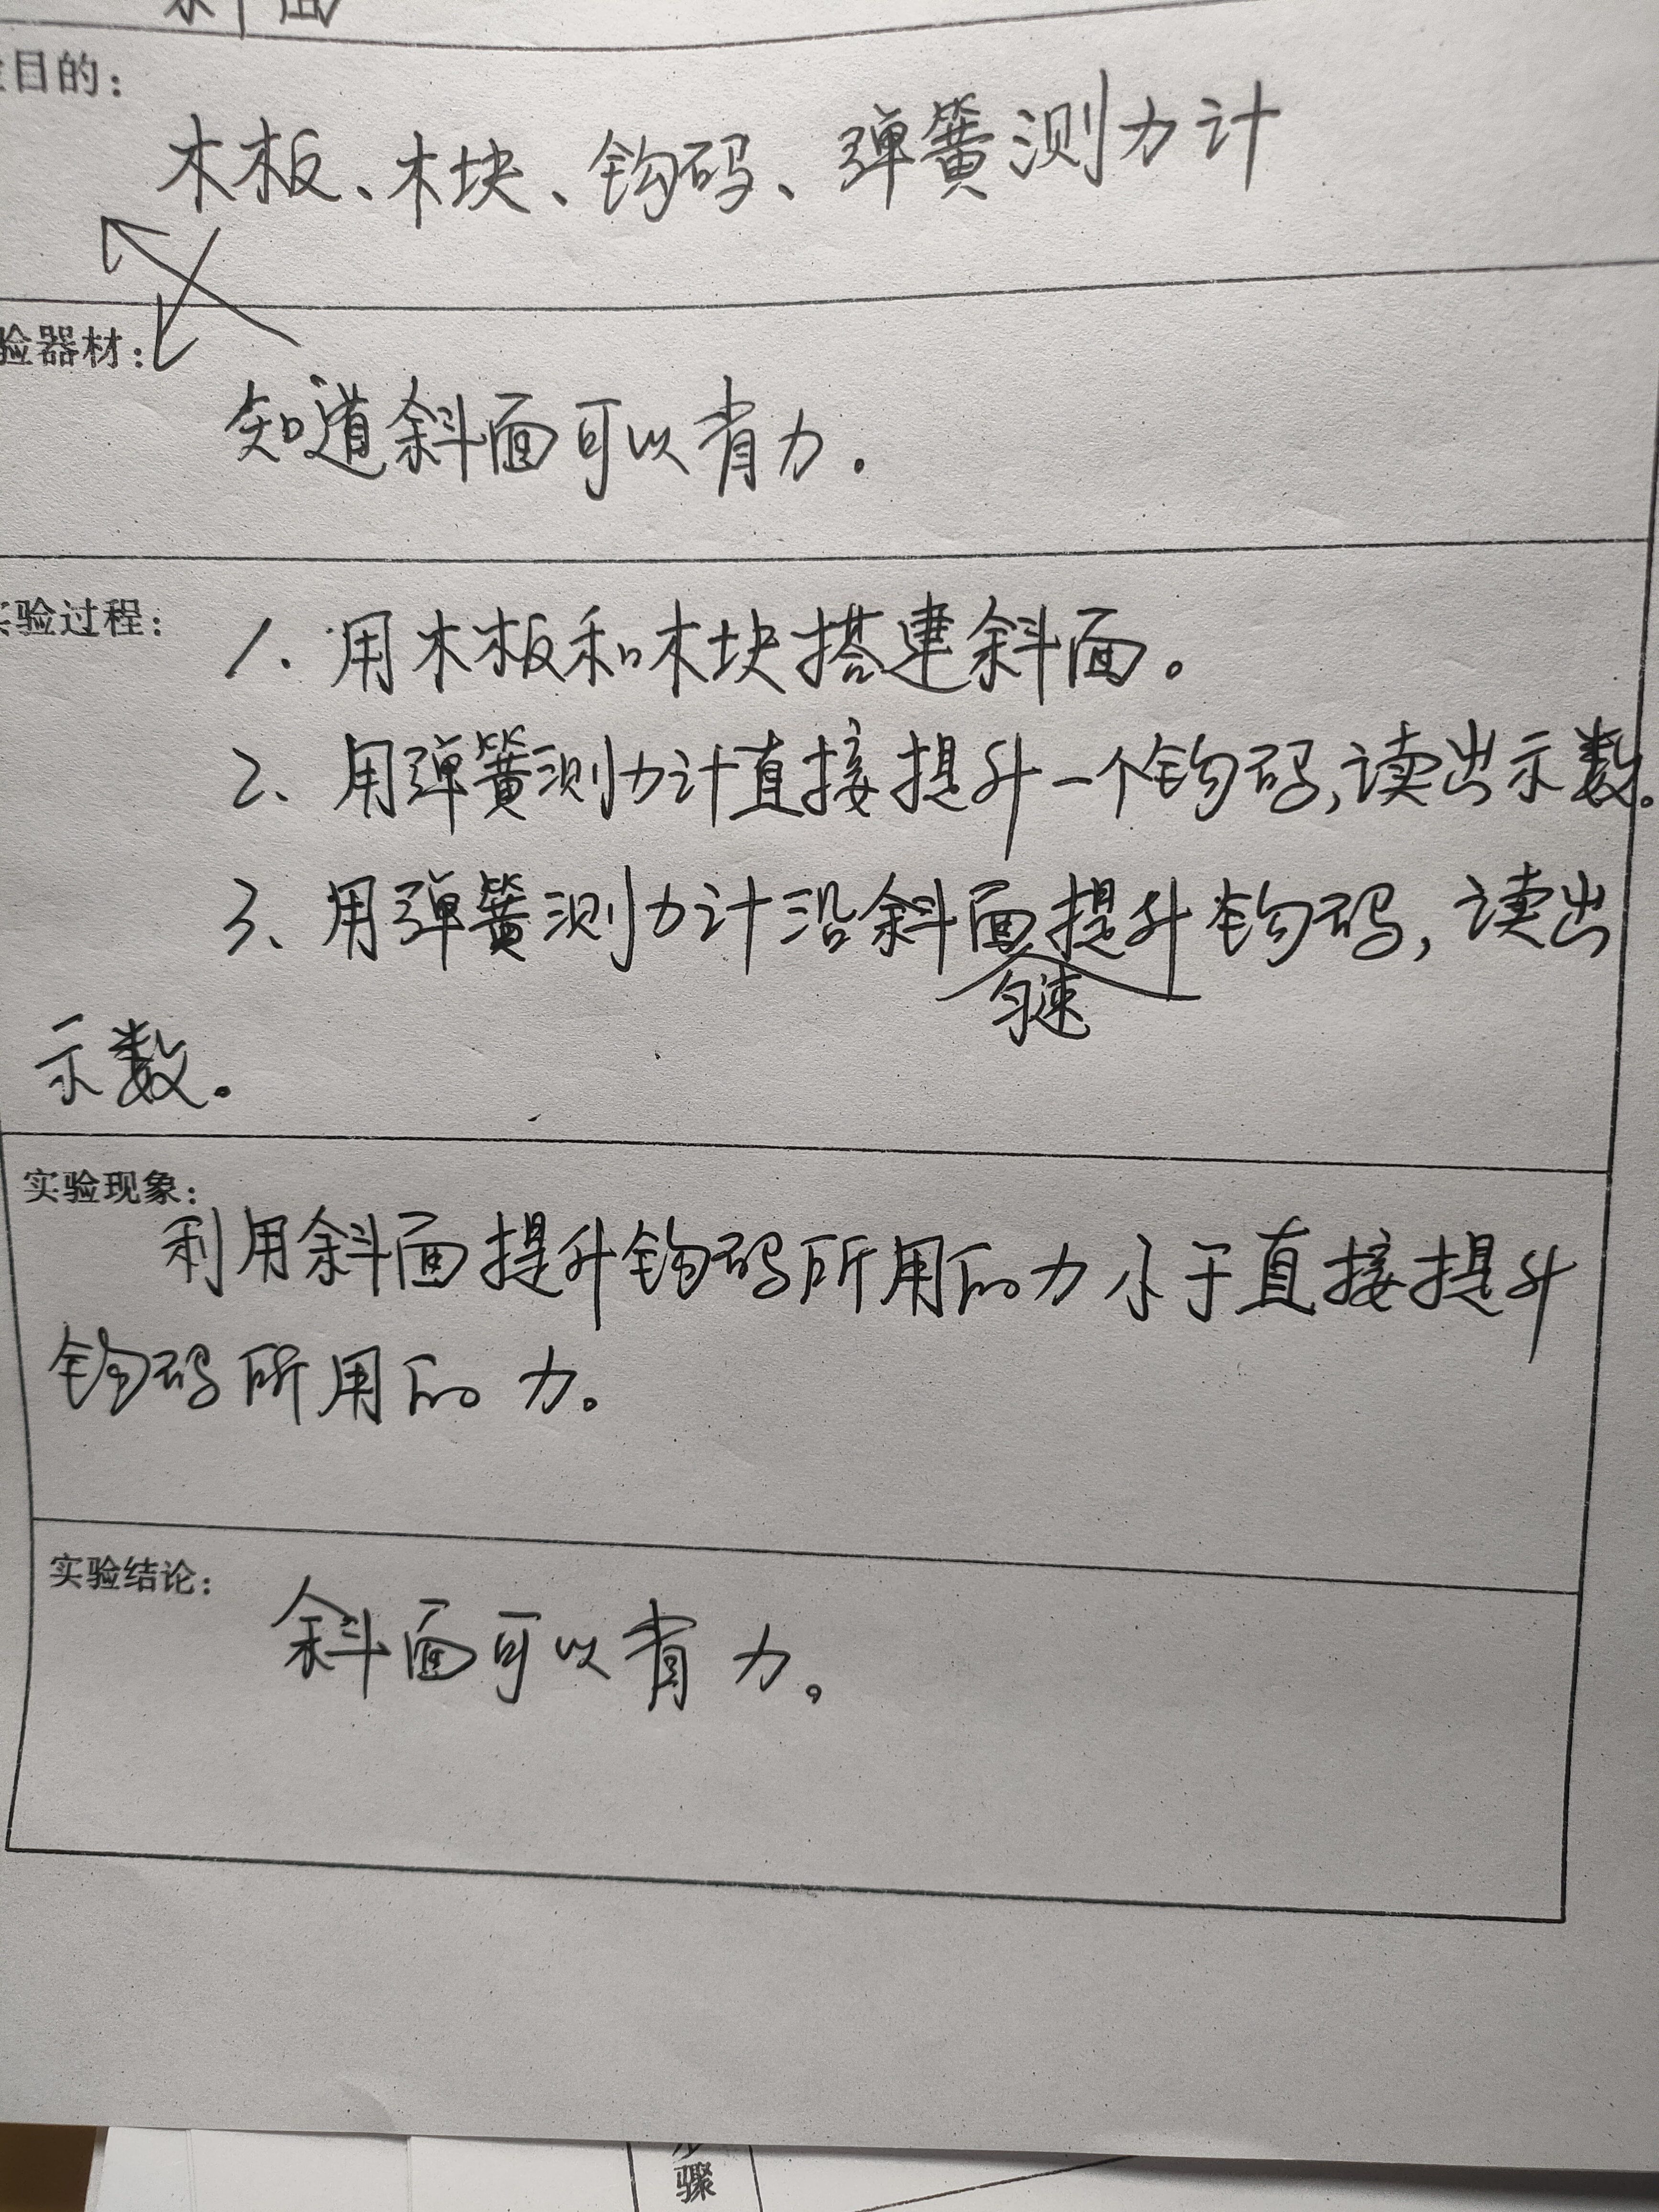 斜面
目的：
木板、木块、钩码、弹簧测力计
验器材：
知道斜面可以省力.
验过程：
1. 用木板和木块搭建斜面。
2、用弹簧测力计直接提升一个钩码,读出示数。
3、用弹簧测力计沿斜面提升钩码, 读出
匀速
示数。
实验现象：
利用斜面提升钩码所用的力小于直接提升
钩码所用的力。
实验结论：
斜面可以省力。
骤